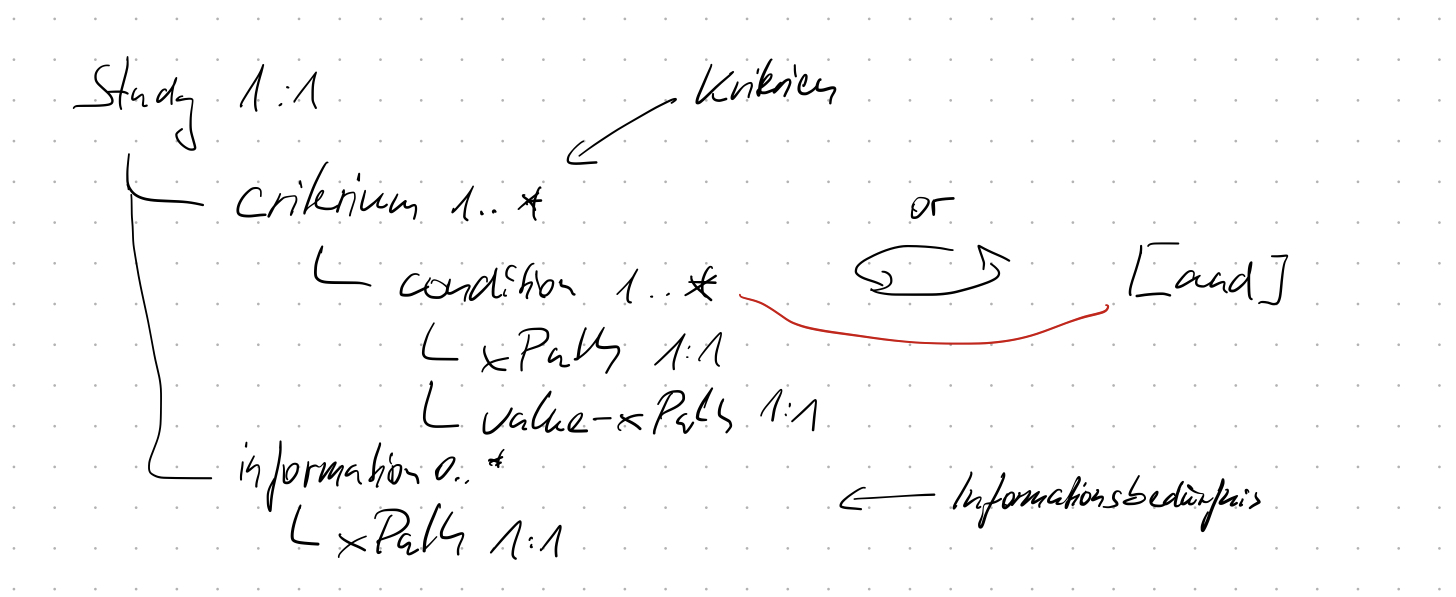 Study 1:1
Kriterien
Criterium 1..*
or
condition 1..*
[and]
xPath 1:1
value-xPath 1:1
information 0..*
Informationsbedürfnis
xPath 1:1